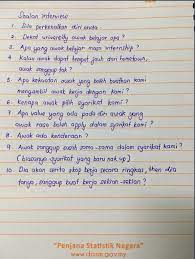 Soalan interview
1. Sila perkenalkan diri anda
2. Dekat university awak belajar apa?
3. Apa yang awak belajar masa internship?
4. Kalau awak dapat tempat jauh dari hometown,
awak sanggup tak?
5. Apa kekuatan awak yang boleh buatkan kami
mengambil awak kerja dengan kami?
6. Kenapa awak pilih syarikat kami?
7. Apa value yang ada pada diri awak yang
awak rasa boleh apply dalam syarikat kami?
8. Awak ada kenderaan?
9. Awak sanggup susah sama-sama dalam syarikat kami?
(biasanya syarikat yang baru nak up)
10. Dia akan cerita skop kerja secara ringkas, then dia
tanya, sanggup buat kerja sekian-sekian?
"Penjana Statistik Negara"
www.dosm.gov.my